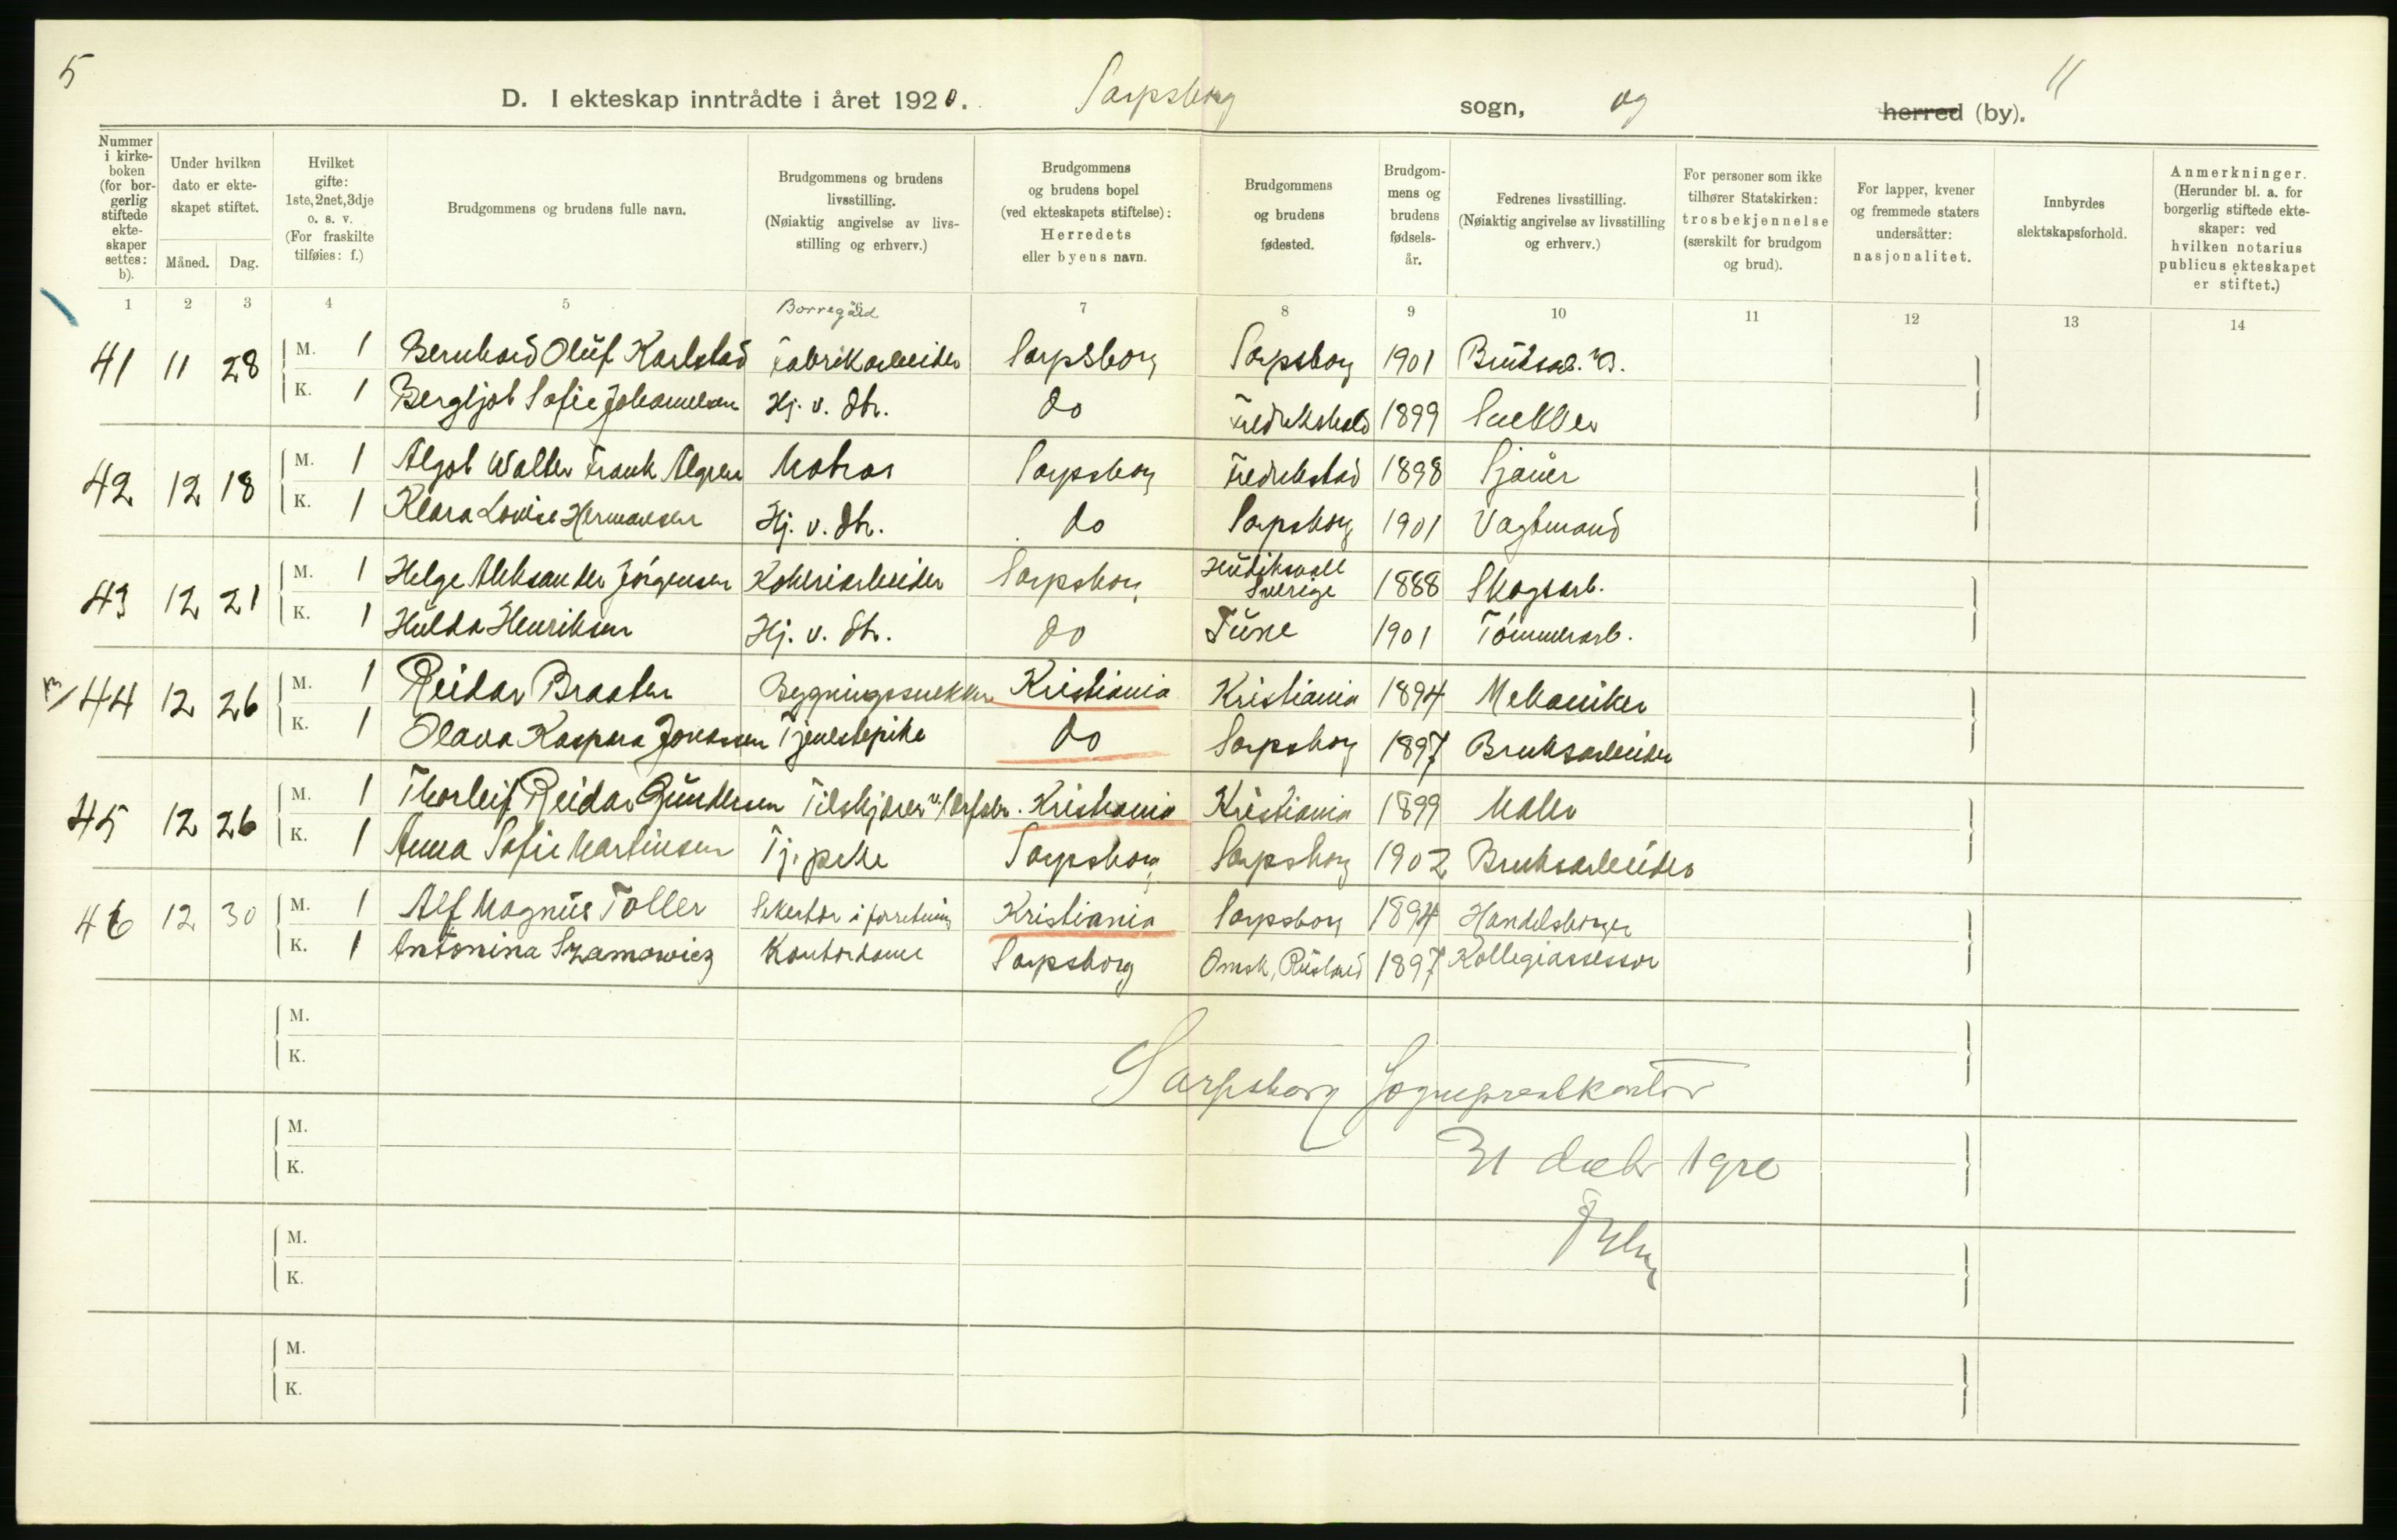 5
11
D. I ekteskap inntrådte i året 1920. Sarpsborg sogn, og herred (by).
Nummer i kirke-boken (for bor-gerlig stiftede ekte-skaper settes: b).
Under hvilken dato er ekte-skapet stiftet.
Måned. Dag.
Hvilket gifte: 1ste, 2net, 3dje o. s. v. (For fraskilte tilføies: f.)
Brudgommens og brudens fulle navn.
Brudgommens og brudens livsstilling. (Nøiaktig angivelse av livs-stilling og erhverv.)
Brudgommens og brudens bopel (ved ekteskapets stiftelse): Herredets eller byens navn.
Brudgommens og brudens fødested.
Brudgom-mens og brudens fødsels-år.
Fedrenes livsstilling. (Nøiaktig angivelse av livsstilling og erhverv.)
For personer som ikke tilhører Statskirken: trosbekjennelse (særskilt for brudgom og brud).
For lapper, kvener og fremmede staters undersåtter: nasjonalitet.
Innbyrdes slektskapsforhold.
Anmerkninger. (Herunder bl. a. for borgerlig stiftede ekte-skaper: ved hvilken notarius publicus ekteskapet er stiftet.)
1 2 3 4 5 7 8 9 10 11 12 13 14
Borregård
41 11 28 M. 1 Bernhard Oluf Karlstad Fabrikarbeider Sarpsborg Sarpsborg 1901 Bruksarb.
K. 1 Bergljot Sofie Johannesen Hj. v. Str. do Fredrikshald 1899 Snekker
42 12 18 M. 1 Algot Walter Frank Algren Matros Sarpsborg Fredrikstad 1898 Sjauer
K. 1 Klara Lovise Hermansen Hj. v. Str. do Sarpsborg 1901 Vagtmand
43 12 21 M. 1 Helge Aleksander Jörgensen Kokeriarbeider Sarpsborg Hudikswall Sverige 1888 Skogsarb.
K. 1 Hulda Henriksen Hj. v. Str. do Tune 1901 Tömmerarb.
44 12 26 M. 1 Reidar Braaten Bygningssnekker Kristiania Kristiania 1894 Mekaniker
K. 1 Olava Kaspara Jonassen Tjenestepike do Sarpsborg 1897 Bruksarbeider
45 12 26 M. 1 Thorleif Reidar Gundersen Tilskjærer Kristiania Kristiania 1899 Maler
K. 1 Anna Sofie Martinsen Tj. pike Sarpsborg Sarpsborg 1902 Bruksarbeider
46 12 30 M. 1 Alf Magnus Toller Sekretær i forretning Kristiania Sarpsborg 1894 Handelsborger
K. 1 Antonina Szamowicz Kontordame Sarpsborg Omsk, Rusland 1897 Kollegiassessor
M.
K.
Sarpsborg Sogneprestkontor
M.
31 decbr 1920
K.
M.
K.
M.
K.